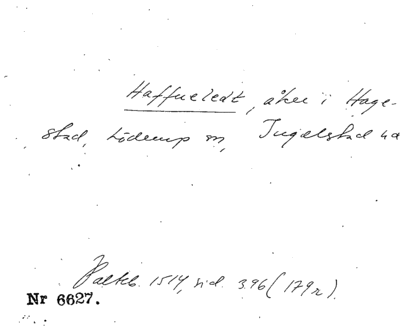 Haffueledt, åker i Hage-
stad, Löderup sn, Ingelstad hd
Palteb. 1514, sid. 396 (179r).
Nr 6627.